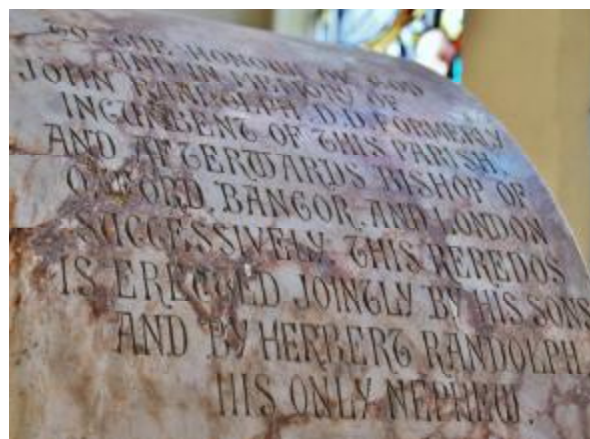 TO THE HONOUR OF GOD
AND IN MEMORY OF
JOHN RANDOLPH D.D. FORMERLY
INCUMBENT OF THIS PARISH,
AND AFTERWARDS BISHOP OF
OXFORD, BANGOR, AND LONDON
SUCCESSIVELY. THIS REREDOS
IS ERECTED JOINTLY BY HIS SONS
AND BY HERBERT RANDOLPH,
HIS ONLY NEPHEW.